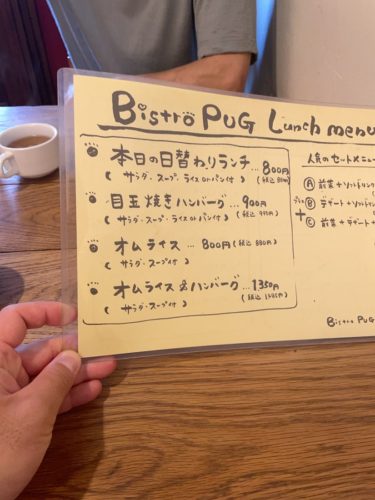 Bistro PUG Lunch menu
本日の日替わりランチ … 800円
( サラダ・スープ・ライスorパン付 ) (税込 880円)
目玉焼きハンバーグ … 900円
( サラダ・スープ・ライスorパン付 ) (税込 990円)
オムライス … 800円 (税込 880円)
( サラダ・スープ付 )
オムライス&ハンバーグ … 1350円
( サラダ・スープ付 ) (税込 1485円)
人気のセットメニュー
Ⓐ 前菜 + ソフトドリンク
プラス
+
Ⓑ デザート + ソフトドリン
Ⓒ 前菜 + デザ
Bistro PUG